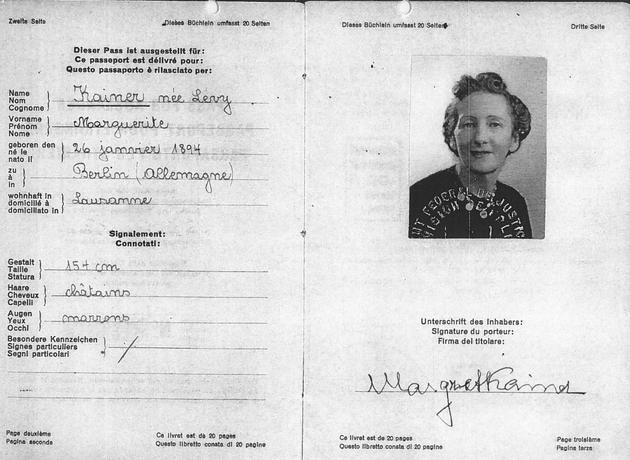 Zweite Seite
Dieses Büchlein umfasst 20 Seiten
Dieser Pass ist ausgestellt für:
Ce passeport est délivré pour:
Questo passaporto è rilasciato per:
Name
Nom
Cognome
Kainer née Levy
Vorname
Prénom
Nome
Marguerite
geboren den
né le
nato il
26 janvier 1894
zu
à
in
Berlin (Allemagne)
wohnhaft in
domicilié à
domiciliato in
Lausanne
Signalement:
Connotati:
Gestalt
Taille
Statura
154 cm
Haare
Cheveux
Capelli
châtains
Augen
Yeux
Occhi
marrons
Besondere Kennzeichen
Signes particuliers
Segni particolari
/
Page deuxième
Pagina seconda
Ce livret est de 20 pages
Questo libretto consta di 20 pagine
Dieses Büchlein umfasst 20 Seiten
Dritte Seite
FEDERAL DE JUSTIC
Unterschrift des Inhabers:
Signature du porteur:
Firma del titolare:
Margret Kainer
Ce livret est de 20 pages
Questo libretto consta di 20 pagine
Page troisième
Pagina terza